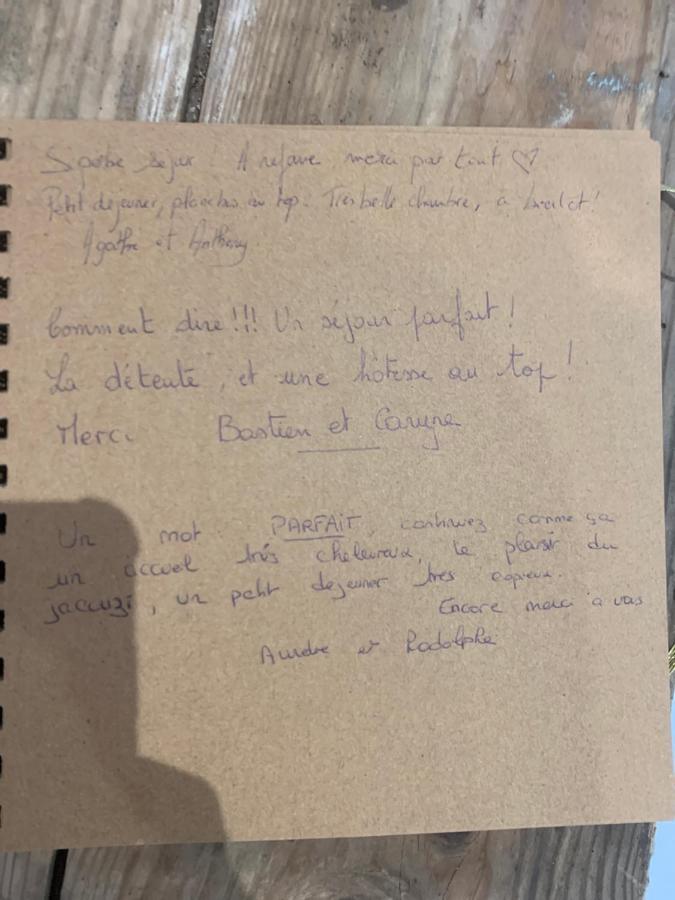 Superbe séjour. A refaire merci pour tout ♡
Petit déjeuner, planches au top. Très belle chambre, à bientôt!
Agathe et Anthony
Comment dire!!! Un séjour parfait!
La détente, et une hôtesse au top!
Merci Bastien et
Un mot PARFAIT, continuez comme ça
un accueil très chaleureux, le plaisir du
jaccuzi, un petit dejeuner très copieux.
Encore merci à vous
et Rodolphe